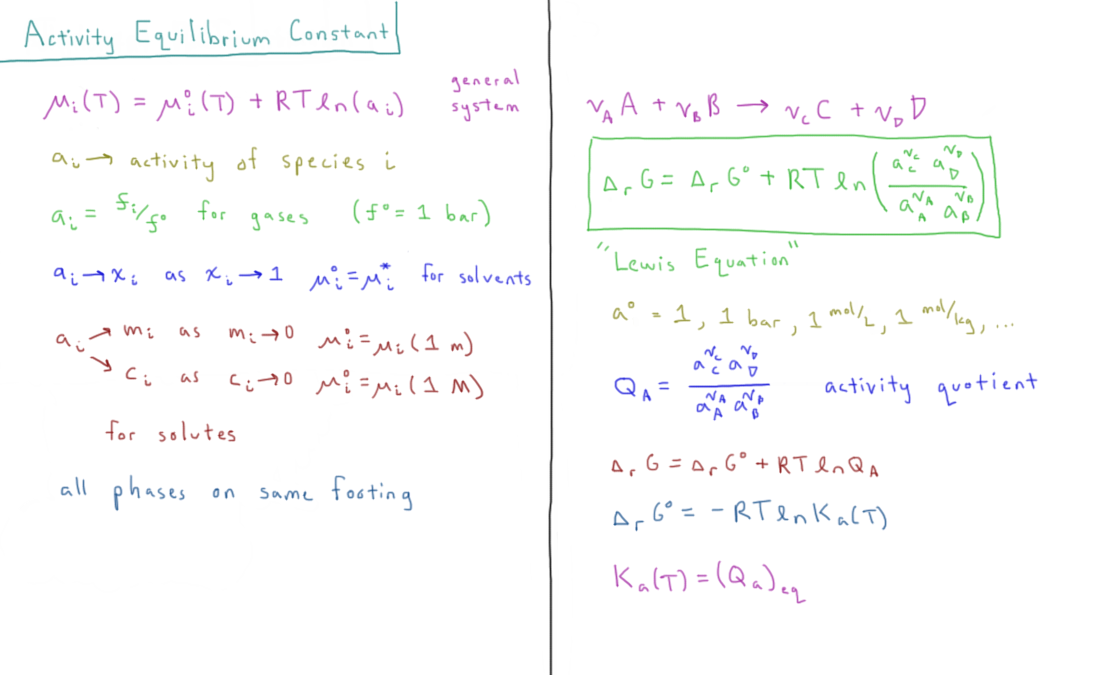 Activity Equilibrium Constant
μᵢ(T) = μᵢ°(T) + RT ln(aᵢ) general system
aᵢ → activity of species i
aᵢ = fᵢ/f° for gases (f° = 1 bar)
aᵢ → xᵢ as xᵢ → 1 μᵢ° = μᵢ* for solvents
aᵢ ↗ mᵢ as mᵢ → 0 μᵢ° = μᵢ(1 m)
↘ cᵢ as cᵢ → 0 μᵢ° = μᵢ(1 M)
for solutes
all phases on same footing
ν_A A + ν_B B → ν_C C + ν_D D
Δ_r G = Δ_r G° + RT ln(a_C^{ν_C} a_D^{ν_D} / a_A^{ν_A} a_B^{ν_B})
"Lewis Equation"
a° = 1, 1 bar, 1 mol/L, 1 mol/kg, ...
Q_A = a_C^{ν_C} a_D^{ν_D} / a_A^{ν_A} a_B^{ν_B} activity quotient
Δ_r G = Δ_r G° + RT ln Q_A
Δ_r G° = - RT ln K_a(T)
K_a(T) = (Q_a)_eq